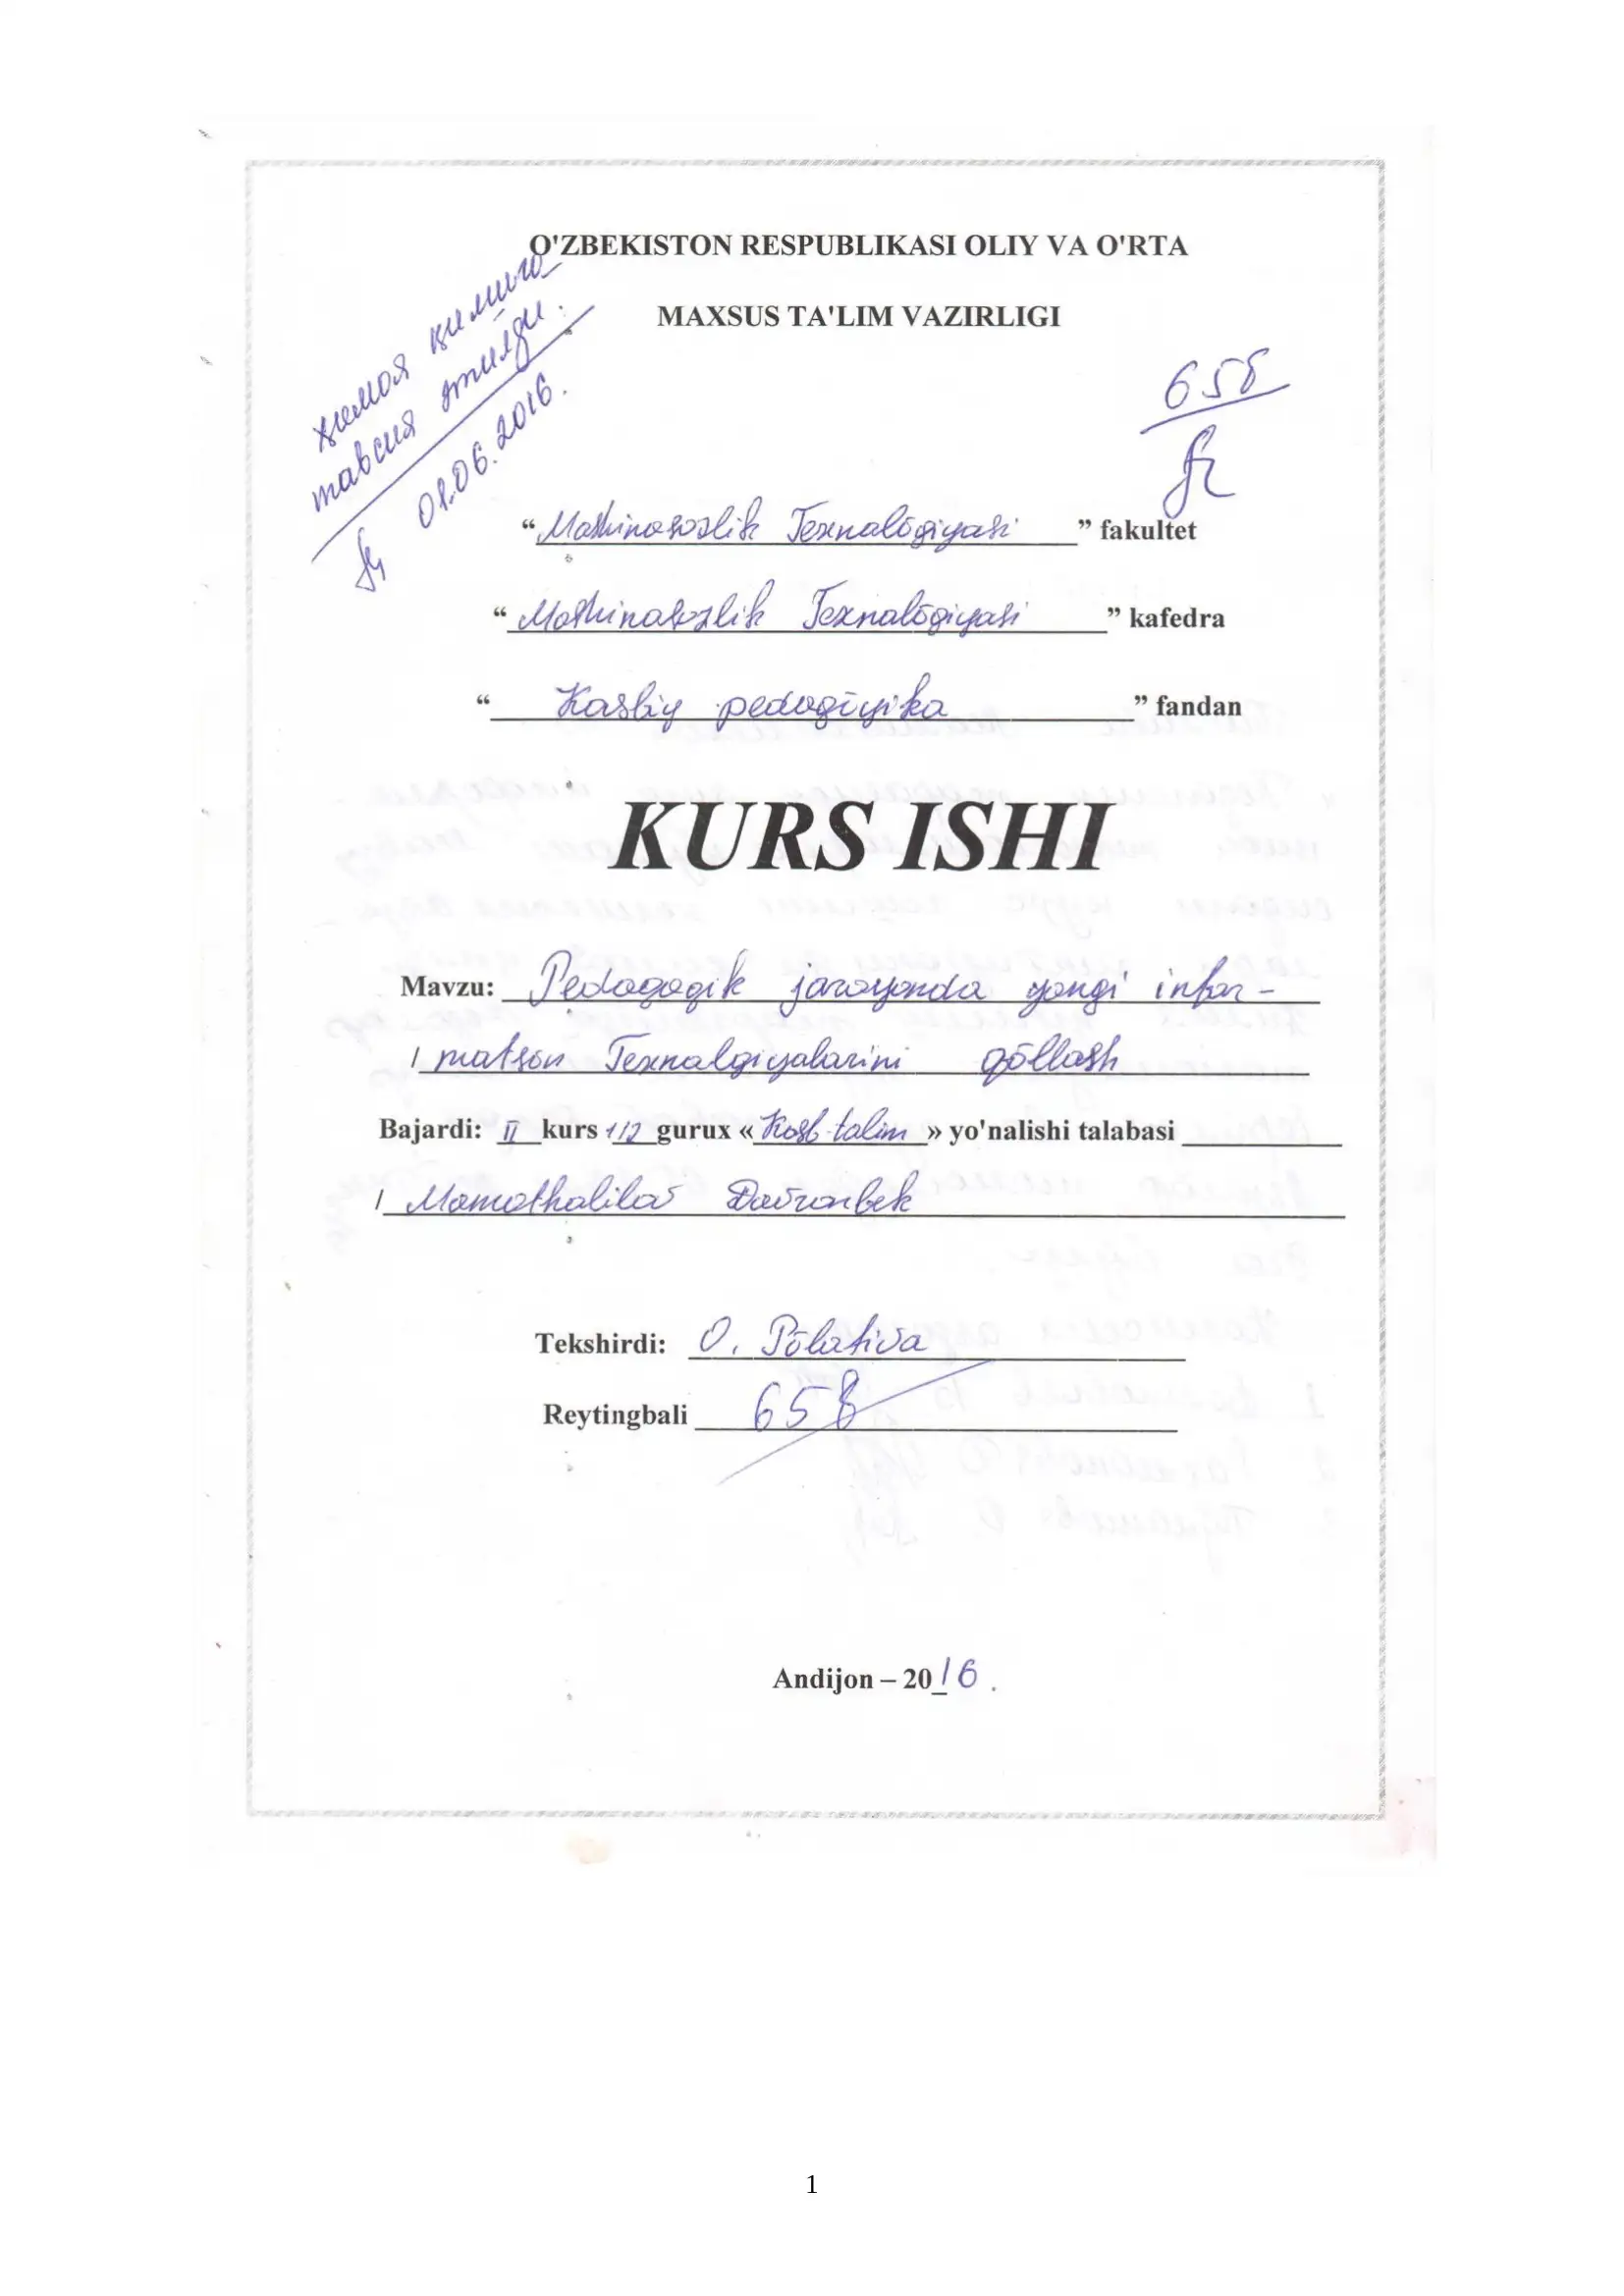 O'ZBEKISTON RESPUBLIKASI OLIY VA O'RTA
MAXSUS TA'LIM VAZIRLIGI
ҳимоя қилишга
тавсия этилди.
01.06.2016.
65б
“Mashinasozlik Texnalōgiyasi” fakultet
“Mashinasozlik Texnalōgiyasi” kafedra
“Kasbiy pedagōgiyika” fandan
KURS ISHI
Mavzu: Pedagogik jarayonda yangi infor-
matsion Texnalgiyalarini qōllash
Bajardi: II kurs 112 gurux «Kasb talim» yo'nalishi talabasi
Mamathalilov Davronbek
Tekshirdi: O. Pōlatova
Reytingbali 65б
Andijon – 2016.
1